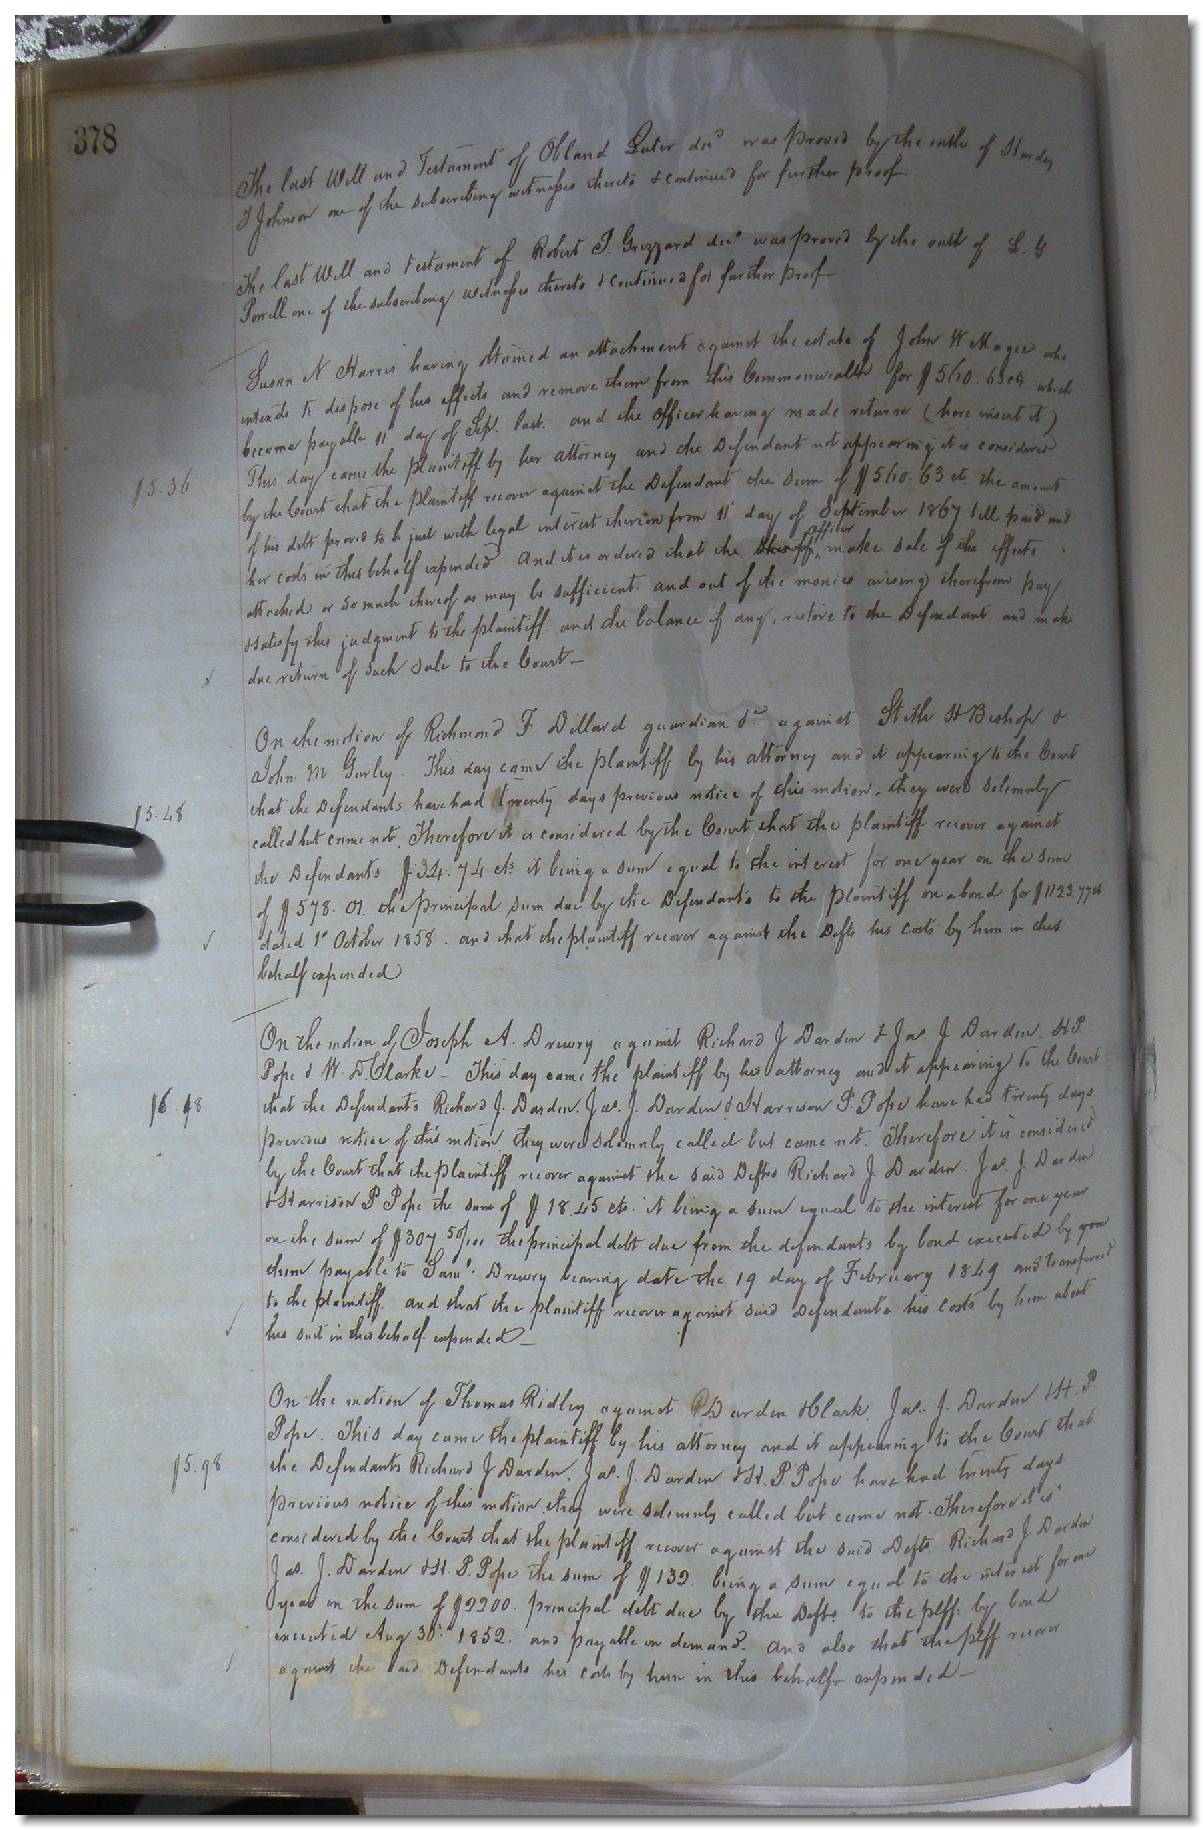 378
The last Will and Testament of Obland Luter decd was proved by the oath of Hardy
T Johnson one of the subscribing witnesses thereto & continued for further proof
The last Will and testament of Robert T. Grizzard decd was proved by the oath of L. G
Powell one of the subscribing witnesses thereto & continued for further proof
Susan N Harris having obtained an attachment against the estate of John W Magee who
intends to dispose of his effects and remove them from this Commonwealth for $560.63cts which
became payable 11th day of Sep. last. and the Officer having made return (here insert it)
This day came the plaintiff by her attorney and the Defendant not appearing it is considered
$5.36
by the Court that the plaintiff recover against the Defendant the sum of $560.63 cts the amount
of his debt proved to be just with legal interest thereon from 11th day of September 1867 till paid and
her costs in this behalf expended And it is ordered that the Sheriff officer make sale of the effects
attached or so much thereof as may be sufficient. and out of the monies arising therefrom pay
& satisfy this judgment to the plaintiff and the balance if any, restore to the Defendant and make
due return of such sale to the Court_
On the motion of Richmond F Dillard guardian &c against Stith H Bishop &
John M Gurley. This day came the plaintiff by his attorney and it appearing to the Court
that the Defendants have had twenty days previous notice of this motion, they were solemnly
$5.48
called but came not, Therefore it is considered by the Court that the plaintiff recover against
the Defendants $34.74 cts it being a sum equal to the interest for one year on the sum
of $578.01 the principal sum due by the Defendants to the plaintiff on a bond for $1123.77cts
dated 1st October 1858. and that the plaintiff recover against the Defts his costs by him in this
behalf expended
On the motion of Joseph A. Drewry against Richard J Darden & Jas J Darden. H.P.
Pope & W. D. Clarke_ This day came the plaintiff by his attorney and it appearing to the Court
$6.48
that the Defendants Richard J. Darden. Jas. J. Darden & Harrison P. Pope have had twenty days
previous notice of this motion they were solemnly called but came not. Therefore it is considered
by the Court that the plaintiff recover against the said Defts Richard J. Darden. Jas. J Darden
& Harrison P Pope the sum of $18.45 cts. it being a sum equal to the interest for one year
on the sum of $307 50/100 the principal debt due from the defendants by bond executed by
them payable to Saml. Drewry bearing date the 19 day of February 1849 and transferred
to the plaintiff. and that the plaintiff recover against said Defendants his costs by him about
his suit in this behalf expended_
On the motion of Thomas Ridley against Darden & Clark. Jas. J. Darden & H. P.
Pope. This day came the plaintiff by his attorney and it appearing to the Court that
$5.98
the Defendants Richard J Darden, Jas. J. Darden & H. P. Pope have had twenty days
previous notice of this motion they were solemnly called but came not. Therefore it is
considered by the Court that the plaintiff recover against the said Defts. Richard J Darden
Jas. J. Darden & H. P. Pope the sum of $132. being a sum equal to the interest for one
year on the sum of $2200. principal debt due by the Defts. to the plff. by bond
executed Aug 30th 1852. and payable on demand. And also that the plff recover
against the said Defendants his costs by him in this behalf expended_